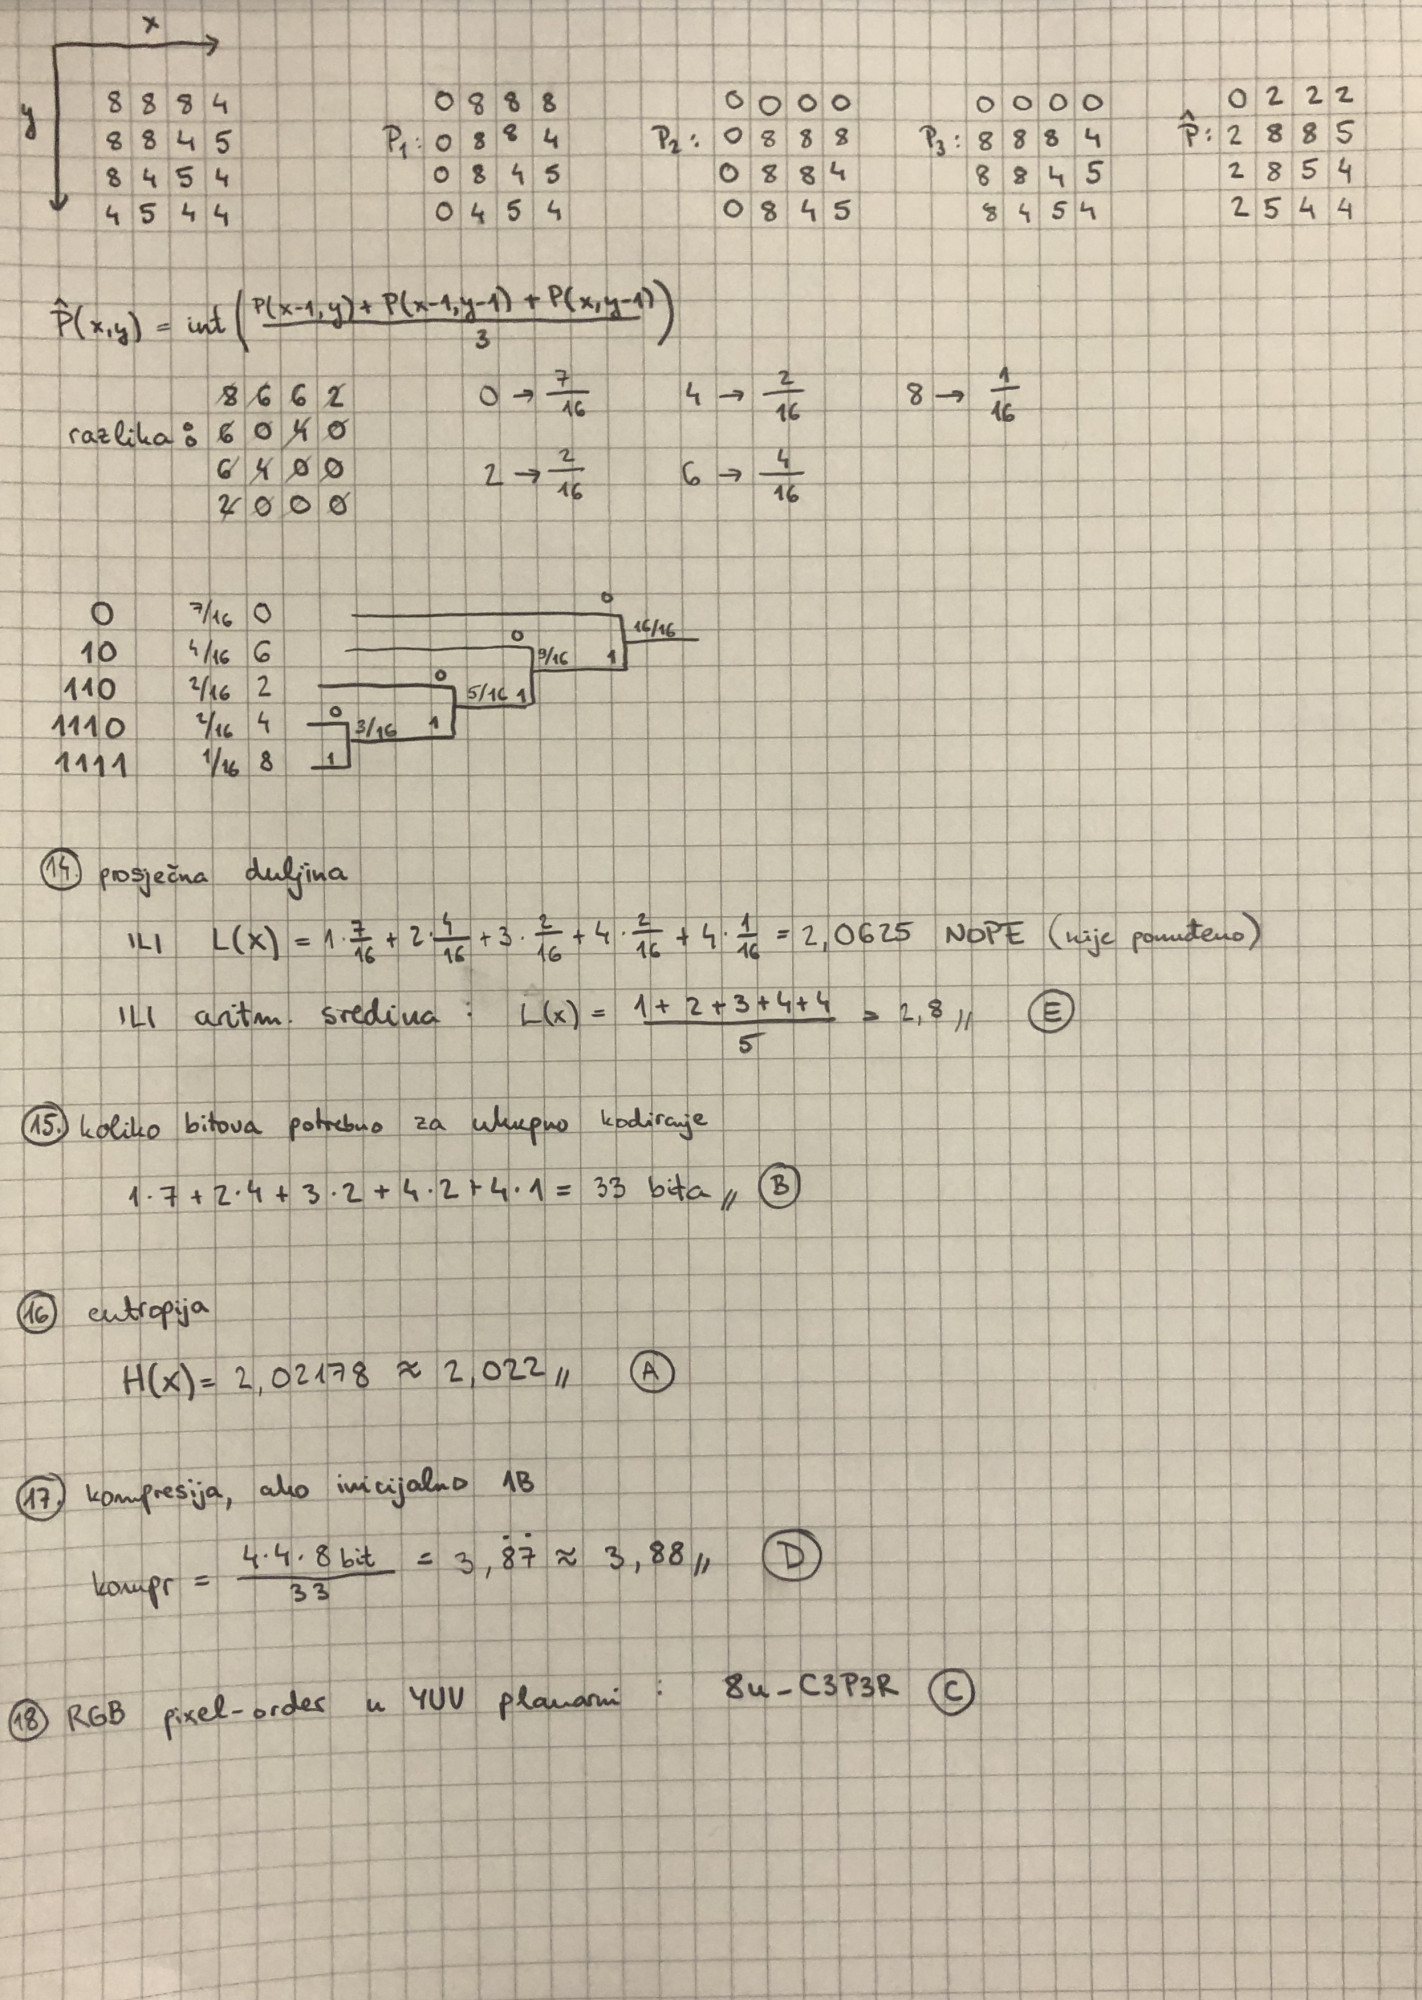 x
y
8 8 8 4
8 8 4 5
8 4 5 4
4 5 4 4
P₁:
0 8 8 8
0 8 8 4
0 8 4 5
0 4 5 4
P₂:
0 0 0 0
0 8 8 8
0 8 8 4
0 8 4 5
P₃:
0 0 0 0
8 8 8 4
8 8 4 5
8 4 5 4
P̂:
0 2 2 2
2 8 8 5
2 8 5 4
2 5 4 4
P̂(x,y) = int( (P(x-1,y) + P(x-1,y-1) + P(x,y-1)) / 3 )
razlika:
8 6 6 2
6 0 4 0
6 4 0 0
2 0 0 0
0 → 7/16 4 → 2/16 8 → 1/16
2 → 2/16 6 → 4/16
0 7/16 0 0 16/16
10 4/16 6 0 9/16 1
110 2/16 2 0 5/16 1
1110 2/16 4 0 3/16 1
1111 1/16 8 1
14. prosječna duljina
ILI L(x) = 1·7/16 + 2·4/16 + 3·2/16 + 4·2/16 + 4·1/16 = 2,0625 NOPE (nije ponuđeno)
ILI aritm. sredina : L(x) = (1+2+3+4+4)/5 = 2,8 // E
15. koliko bitova potrebno za ukupno kodiranje
1·7 + 2·4 + 3·2 + 4·2 + 4·1 = 33 bita // B
16 entropija
H(x) = 2,02178 ≈ 2,022 // A
17. kompresija, ako inicijalno 1B
kompr = 4·4·8 bit / 33 = 3,8̇7̇ ≈ 3,88 // D
18 RGB pixel-order u YUV planarni : 8u-C3P3R C